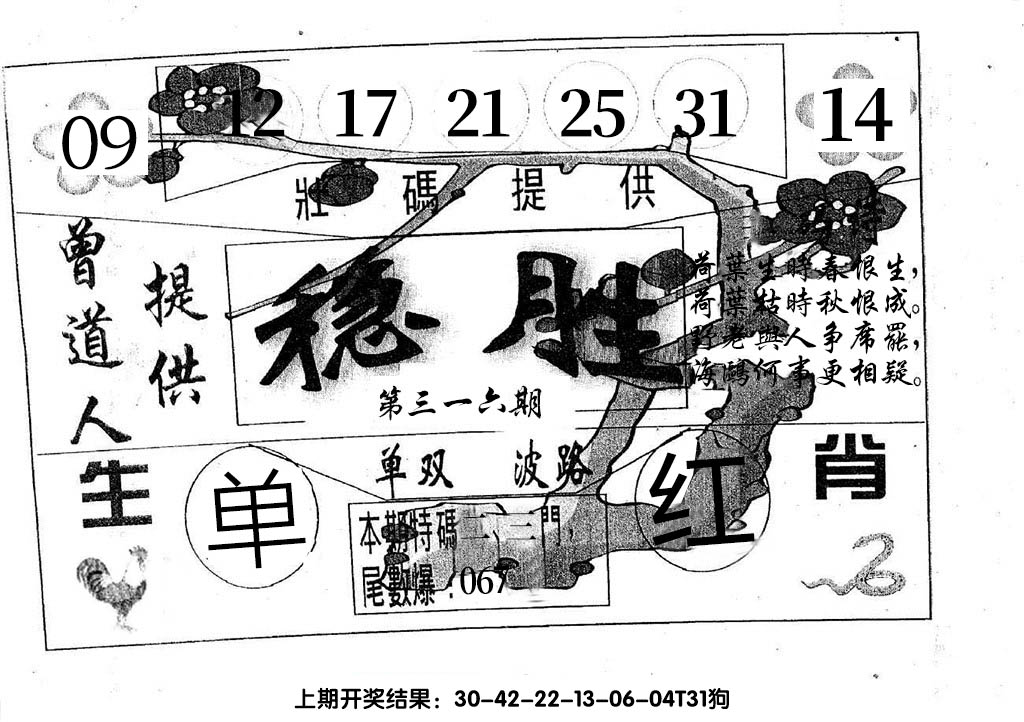 09 12 17 21 25 31 14
壯碼提供
特
曾道人
提供
稳胜
第三一六期
荷葉生時春恨生，
荷葉枯時秋恨成。
野老與人争席罷，
海鷗何事更相疑。
生肖
单双 波路
单 红
本期特碼二、三門，
尾數爆：067
上期开奖结果：30-42-22-13-06-04T31狗